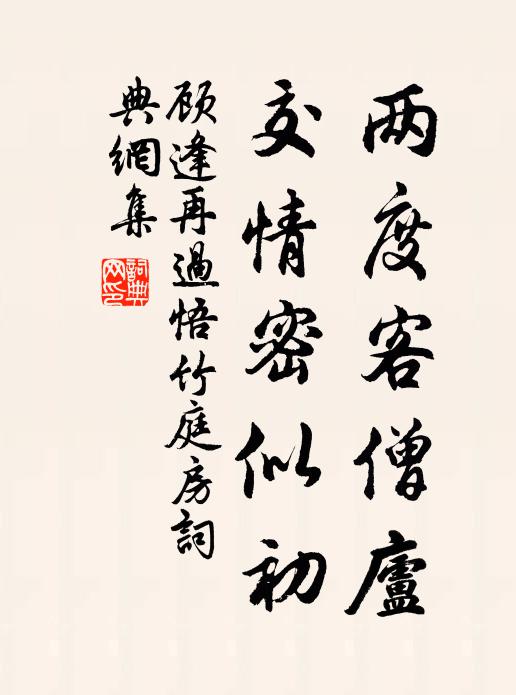 两度客僧廬
交情密似初
顾逢再過悟竹庭房詞
典網集
詞典
网印